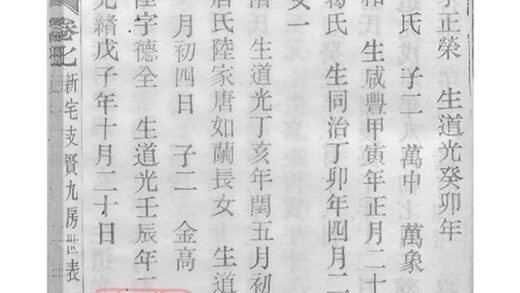 正榮 生道光癸卯年
氏 子二 萬中 萬象
氏 生咸豐甲寅年正月二十
氏 生同治丁卯年四月二
女一
生道光丁亥年閏五月初
氏陸家唐如蘭長女 生道
月初四日 子二 金高
字德全 生道光壬辰年二
光緒戊子年十月二十日
卷七 新宅支賢九房世表